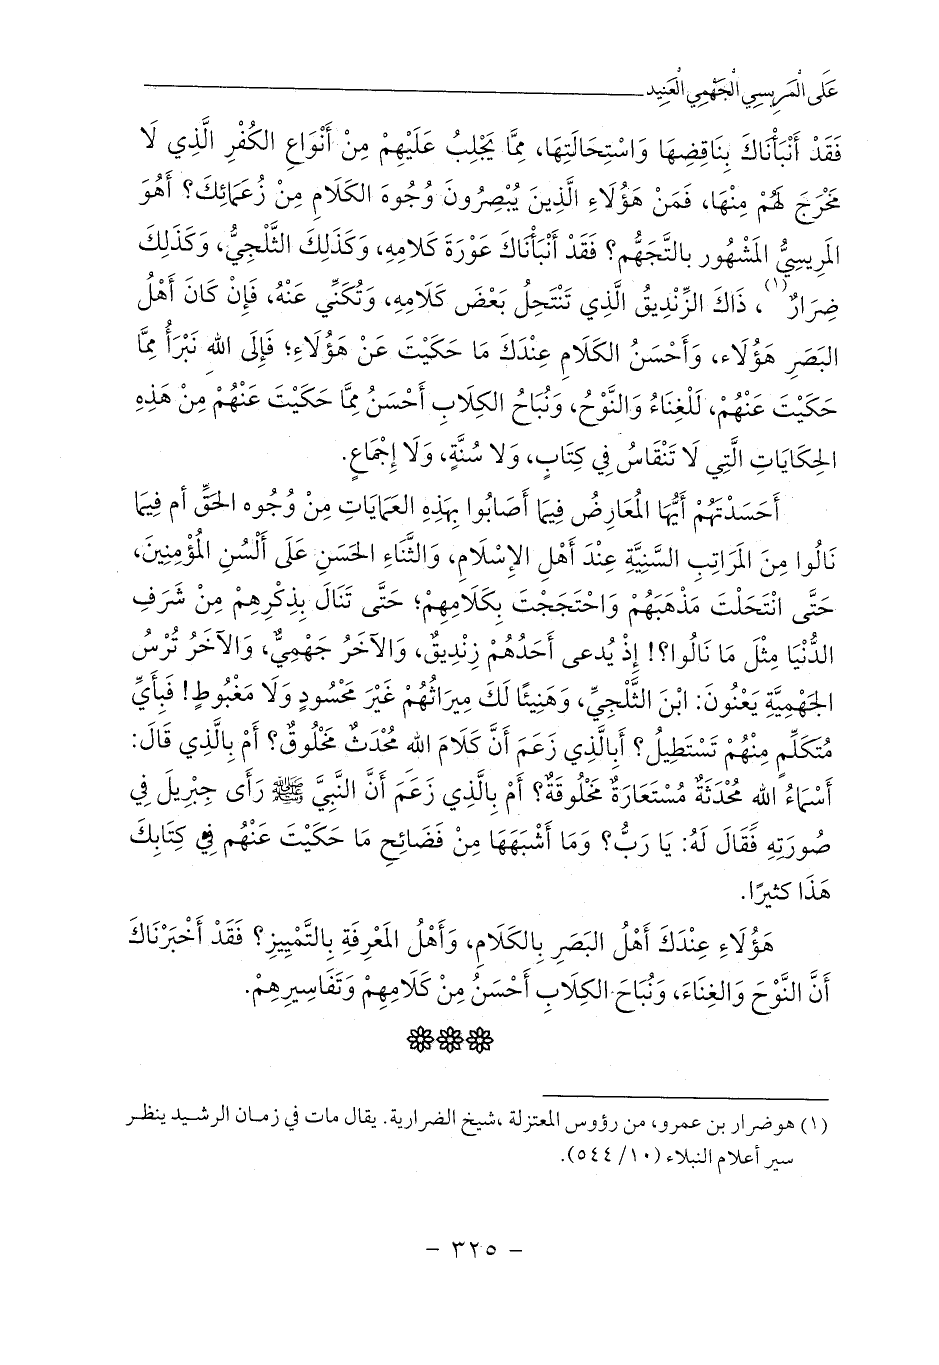 عَلَى المَرِيسِي الْجَهْمِي الْعَنِيد
فَقَدْ أَنْبَأْنَاكَ بِنَاقِضِهَا وَاسْتِحَالَتِهَا، مِمَّا يَجْلِبُ عَلَيْهِمْ مِنْ أَنْوَاعِ الكُفْرِ الَّذِي لَا
مَخْرَجَ لَهُمْ مِنْهَا، فَمَنْ هَؤُلَاءِ الَّذِينَ يُبْصِرُونَ وُجُوهَ الكَلَامِ مِنْ زُعَمَائِكَ؟ أَهُوَ
المَرِيسِيُّ المَشْهُور بِالتَّجَهُّم؟ فَقَدْ أَنْبَأْنَاكَ عَوْرَةَ كَلَامِهِ، وَكَذَلِكَ الثَّلْجِيُّ، وَكَذَلِكَ
ضِرَارٌ(١)، ذَاكَ الزِّنْدِيقُ الَّذِي تَنْتَحِلُ بَعْضَ كَلَامِهِ، وَتُكَنِّي عَنْهُ، فَإِنْ كَانَ أَهْلُ
البَصَرِ هَؤُلَاء، وَأَحْسَنُ الكَلَامِ عِنْدَكَ مَا حَكَيْتَ عَنْ هَؤُلَاءِ؛ فَإِلَى اللهِ نَبْرَأُ مِمَّا
حَكَيْتَ عَنْهُمْ، لَلْغِنَاءُ وَالنَّوْحُ، وَنُبَاحُ الكِلَابِ أَحْسَنُ مِمَّا حَكَيْتَ عَنْهُمْ مِنْ هَذِهِ
الحِكَايَاتِ الَّتِي لَا تَنْقَاسُ فِي كِتَابٍ، وَلَا سُنَّةٍ، وَلَا إِجْمَاعٍ.
أَحَسَدْتَهُمْ أَيُّهَا المُعَارِضُ فِيمَا أَصَابُوا بِهَذِهِ العَمَايَاتِ مِنْ وُجُوه الحَقِّ أم فِيمَا
نَالُوا مِنَ المَرَاتِبِ السَّنِيَّةِ عِنْدَ أَهْلِ الإِسْلَامِ، وَالثَّنَاءِ الحَسَنِ عَلَى أَلْسُنِ المُؤْمِنِينَ،
حَتَّى انْتَحَلْتَ مَذْهَبَهُمْ وَاحْتَجَجْتَ بِكَلَامِهِمْ؛ حَتَّى تَنَالَ بِذِكْرِهِمْ مِنْ شَرَفِ
الدُّنْيَا مِثْلَ مَا نَالُوا؟! إِذْ يُدعى أَحَدُهُمْ زِنْدِيق، وَالآخَرُ جَهْمِيٌّ، وَالآخَرُ تُرْسُ
الجَهْمِيَّةِ يَعْنُونَ: ابْنَ الثَّلْجِيِّ، وَهَنِيئًا لَكَ مِيرَاثُهُمْ غَيْرَ مَحْسُودٍ وَلَا مَغْبُوطٍ! فَبِأَيِّ
مُتَكَلِّمٍ مِنْهُمْ تَسْتَطِيلُ؟ أَبِالَّذِي زَعَمَ أَنَّ كَلَامَ الله مُحْدَثٌ مَخْلُوقٌ؟ أَمْ بِالَّذِي قَالَ:
أَسْمَاءُ الله مُحْدَثَةٌ مُسْتَعَارَةٌ مَخْلُوقَةٌ؟ أَمْ بِالَّذِي زَعَمَ أَنَّ النَّبِيَّ ﷺ رَأَى جِبْرِيلَ فِي
صُورَتِهِ فَقَالَ لَهُ: يَا رَبُّ؟ وَمَا أَشْبَهَهَا مِنْ فَضَائِحِ مَا حَكَيْتَ عَنْهُم فِي كِتَابِكَ
هَذَا كثيرًا.
هَؤُلَاءِ عِنْدَكَ أَهْلُ البَصَرِ بِالكَلَامِ، وَأَهْلُ المَعْرِفَةِ بِالتَّمْيِيزِ؟ فَقَدْ أَخْبَرْنَاكَ
أَنَّ النَّوْحَ وَالغِنَاءَ، وَنُبَاحَ الكِلَابِ أَحْسَنُ مِنْ كَلَامِهِمْ وَتَفَاسِيرِهِمْ.
(١) هو ضرار بن عمرو، من رؤوس المعتزلة ،شيخ الضرارية. يقال مات في زمان الرشيد ينظر
سير أعلام النبلاء (١٠/ ٥٤٤).
- ٣٢٥ -